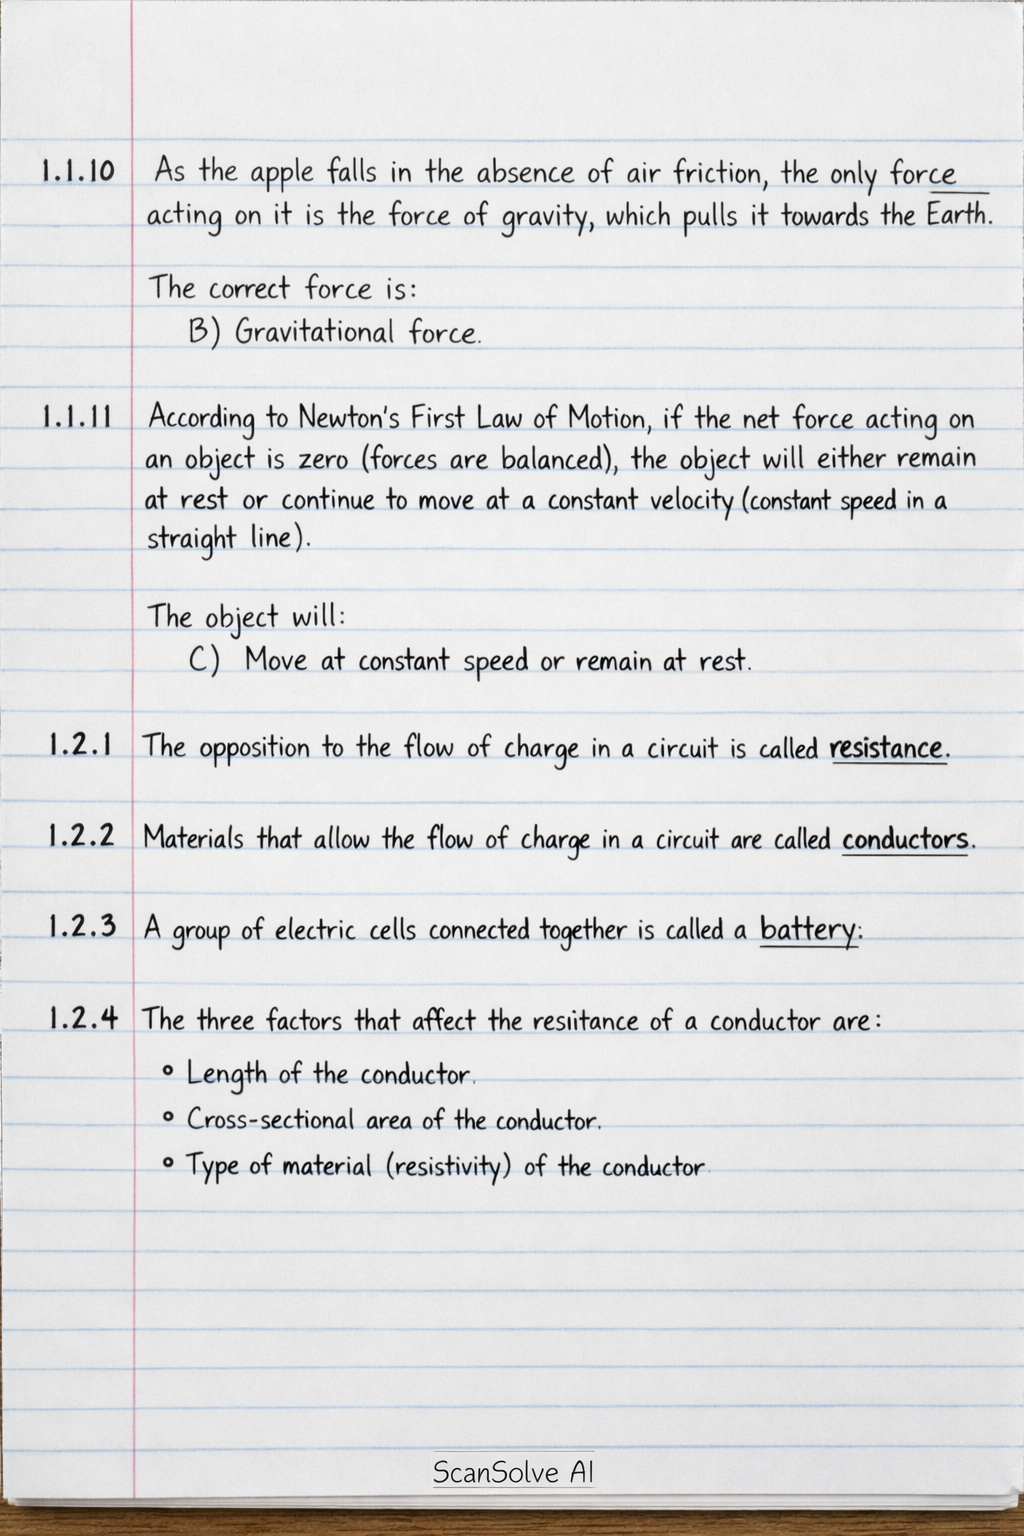 1.1.10 As the apple falls in the absence of air friction, the only force
acting on it is the force of gravity, which pulls it towards the Earth.
The correct force is:
B) Gravitational force.
1.1.11 According to Newton's First Law of Motion, if the net force acting on
an object is zero (forces are balanced), the object will either remain
at rest or continue to move at a constant velocity (constant speed in a
straight line).
The object will:
C) Move at constant speed or remain at rest.
1.2.1 The opposition to the flow of charge in a circuit is called resistance.
1.2.2 Materials that allow the flow of charge in a circuit are called conductors.
1.2.3 A group of electric cells connected together is called a battery:
1.2.4 The three factors that affect the resiitance of a conductor are:
° Length of the conductor.
° Cross-sectional area of the conductor.
° Type of material (resistivity) of the conductor.
ScanSolve AI